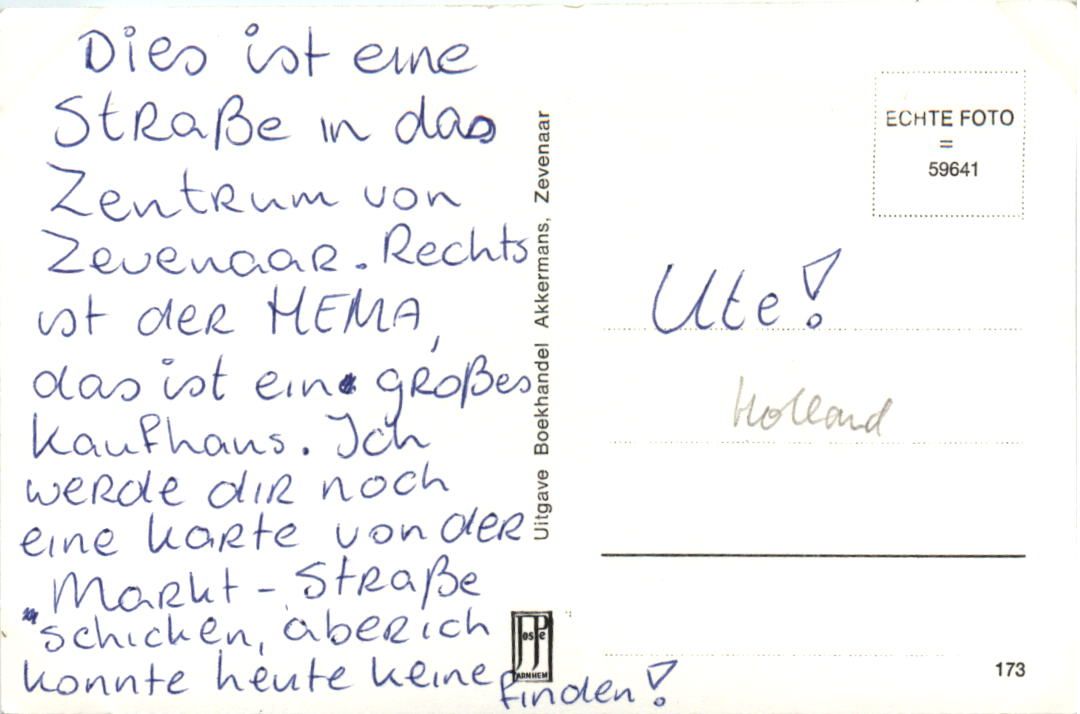 Dies ist eine
Straße in das
Zentrum von
Zevenaar. Rechts
ist der HEMA,
das ist ein großes
Kaufhaus. Ich
werde dir noch
eine Karte von der
Markt-Straße
schicken, aber ich
konnte heute keine finden!
Uitgave Boekhandel Akkermans, Zevenaar
JosPé
ARNHEM
ECHTE FOTO
=
59641
Ute!
Holland
173